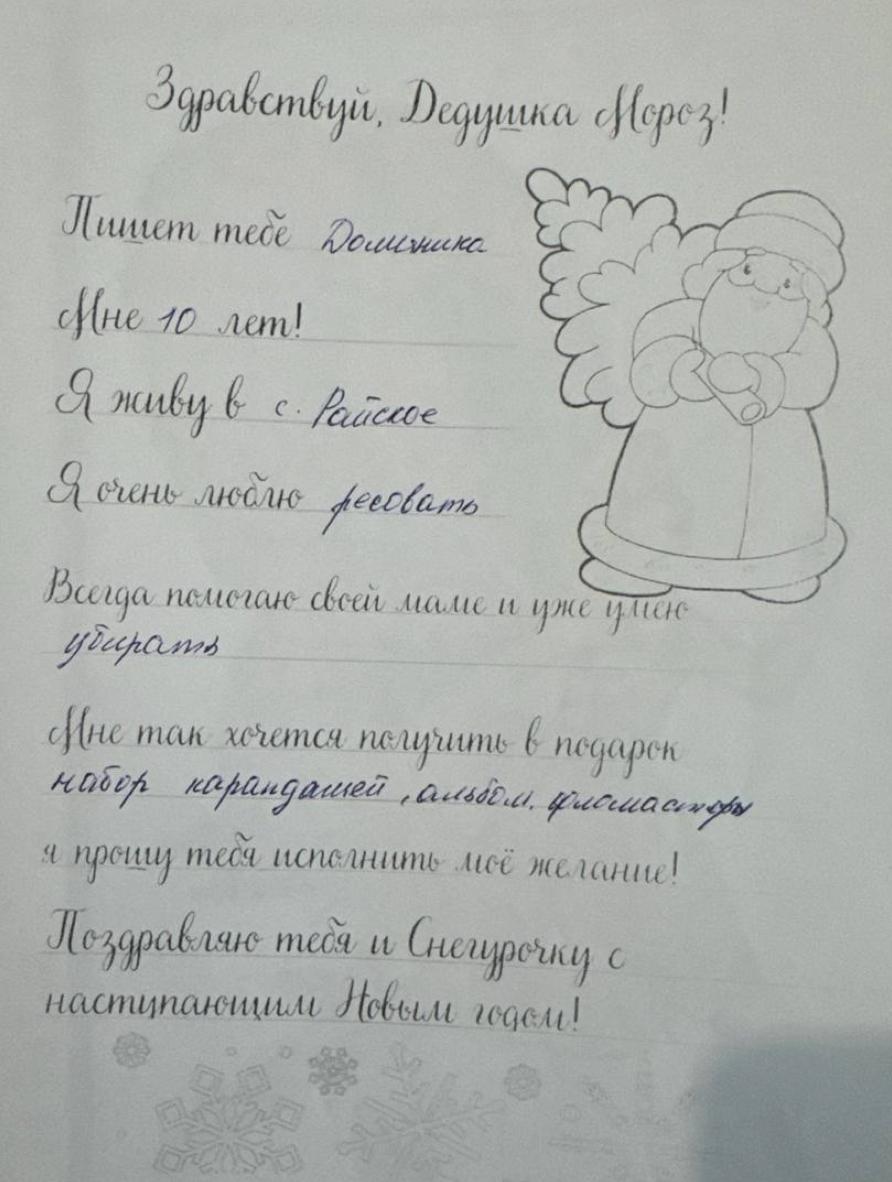 Здравствуй, Дедушка Мороз!
Пишет тебе Доминика
Мне 10 лет!
Я живу в с. Райское
Я очень люблю ресовать
Всегда помогаю своей маме и уже умею
убирать
Мне так хочется получить в подарок
набор карандашей, альбом, фломастеры
я прошу тебя исполнить моё желание!
Поздравляю тебя и Снегурочку с
наступающим Новым годом!